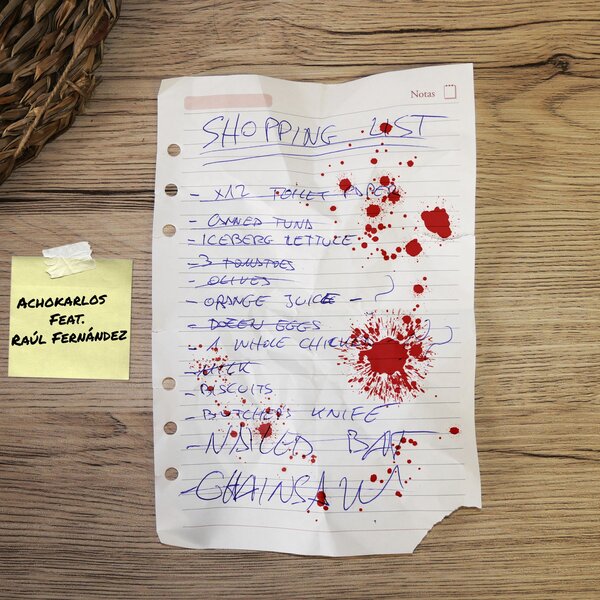 Notas
SHOPPING LIST
- X12 TOILET PAPER
- CANNED TUNA
- ICEBERG LETTUCE
- 3 TOMATOES
- OLIVES
- ORANGE JUICE -
- DOZEN EGGS
- 1 WHOLE CHICKEN
- MILK
- BISCUITS
- BUTCHERS KNIFE
- NAILED BAT
- CHAINSAW
ACHOKARLOS
FEAT.
RAÚL FERNÁNDEZ